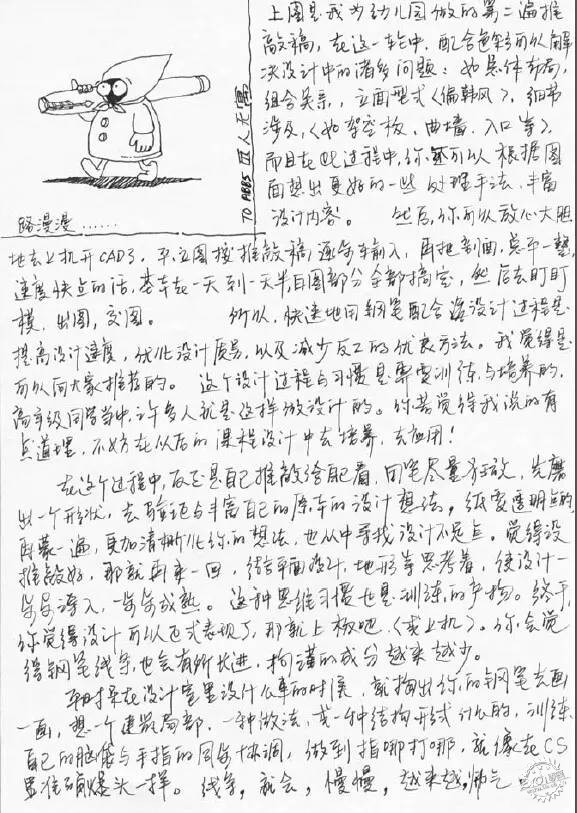 上图是我为幼儿园做的第二遍推
敲稿，在这一轮中，配合色彩可以解
决设计中的诸多问题：如总体布局，
组合关系，立面型式〈偏韩风〉，细节
涉及，〈如架空板、曲墙、入口等〉
而且在此过程中，你可以根据图
面想出更好的一些处理手法，丰富
设计内容。 然后，你可以放心大胆
路漫漫……
TO ABBS 人无寓
地去上机开CAD了，平、立图按推敲稿逐步车输入，再把剖面，总平一整，
速度快点的话，基本在一天到一天半白图部分全部搞定，然后去盯盯
模，出图，交图。 所以，快速地用钢笔配合设计过程是
提高设计速度，优化设计质量，以及减少反工的优良方法。我觉得是
可以向大家推荐的。这个设计过程与习惯是需要训练与培养的，
高年级同学当中，许多人就是这样做设计的。你若觉得我说的有
点道理，不妨在以后的课程设计中去培养，去应用！
在这个过程中，反正是自己推敲给自己看，用笔尽量奔放，先磨
出一个形状，去验证与丰富自己的原本的设计想法，纸要透明点的
再蒙一遍，更加清晰化你的想法，也从中寻找设计不足点。觉得没
推敲好，那就再来一回，结合平面设计，地形等思考着，使设计一
步步深入，一步步成熟。这种思维习惯也是训练的产物。终于，
你觉得设计可以正式表现了，那就上板吧〈或上机〉。你会觉
得钢笔线条也会有所长进，拘谨的成分越来越少。
平时呆在设计室里没什么事的时候，就掏出你的钢笔去画
一画，想一个建筑局部，一种做法，或一种结构形式什么的，训练
自己的脑袋与手指的同步协调，做到指哪打哪，就像在CS
里准确爆头一样。线条，就会，慢慢，越来越，帅气